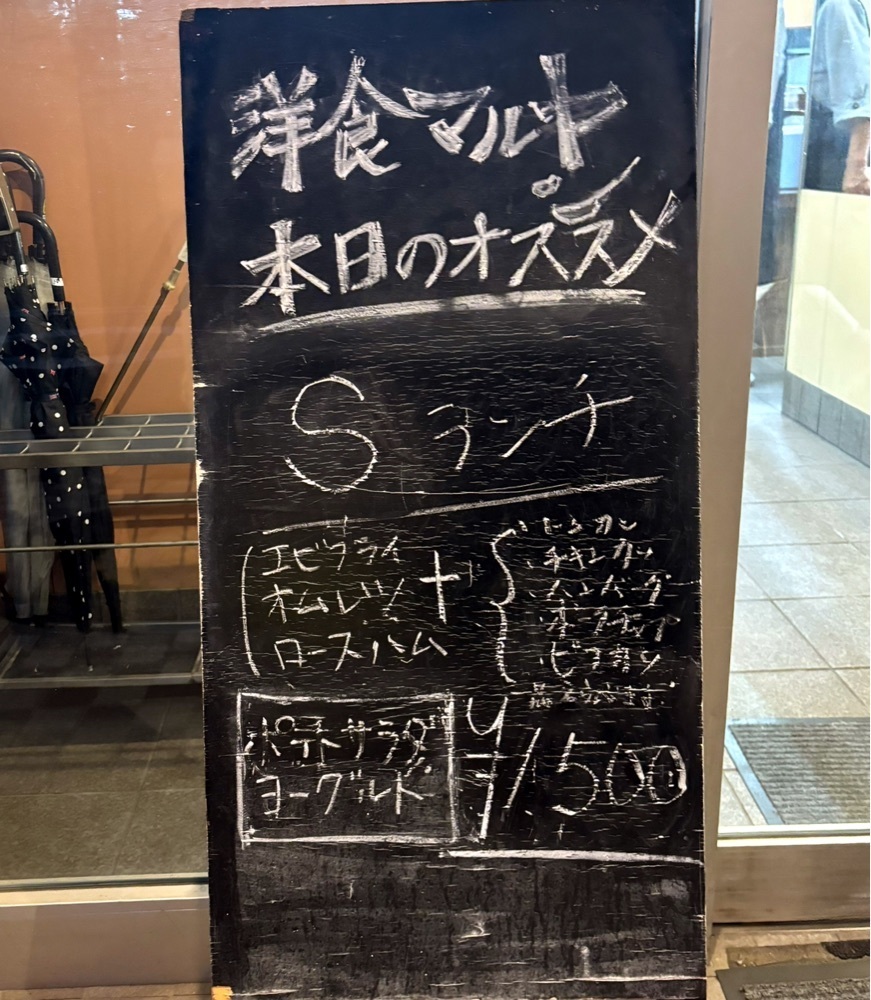 洋食マルヤ
本日のオススメ
Sランチ
エビフライ
オムレツ
ロースハム
+
トンカツ
チキンカツ
ハンバーグ
ポテトサラダ
ヨーグルト
¥1500